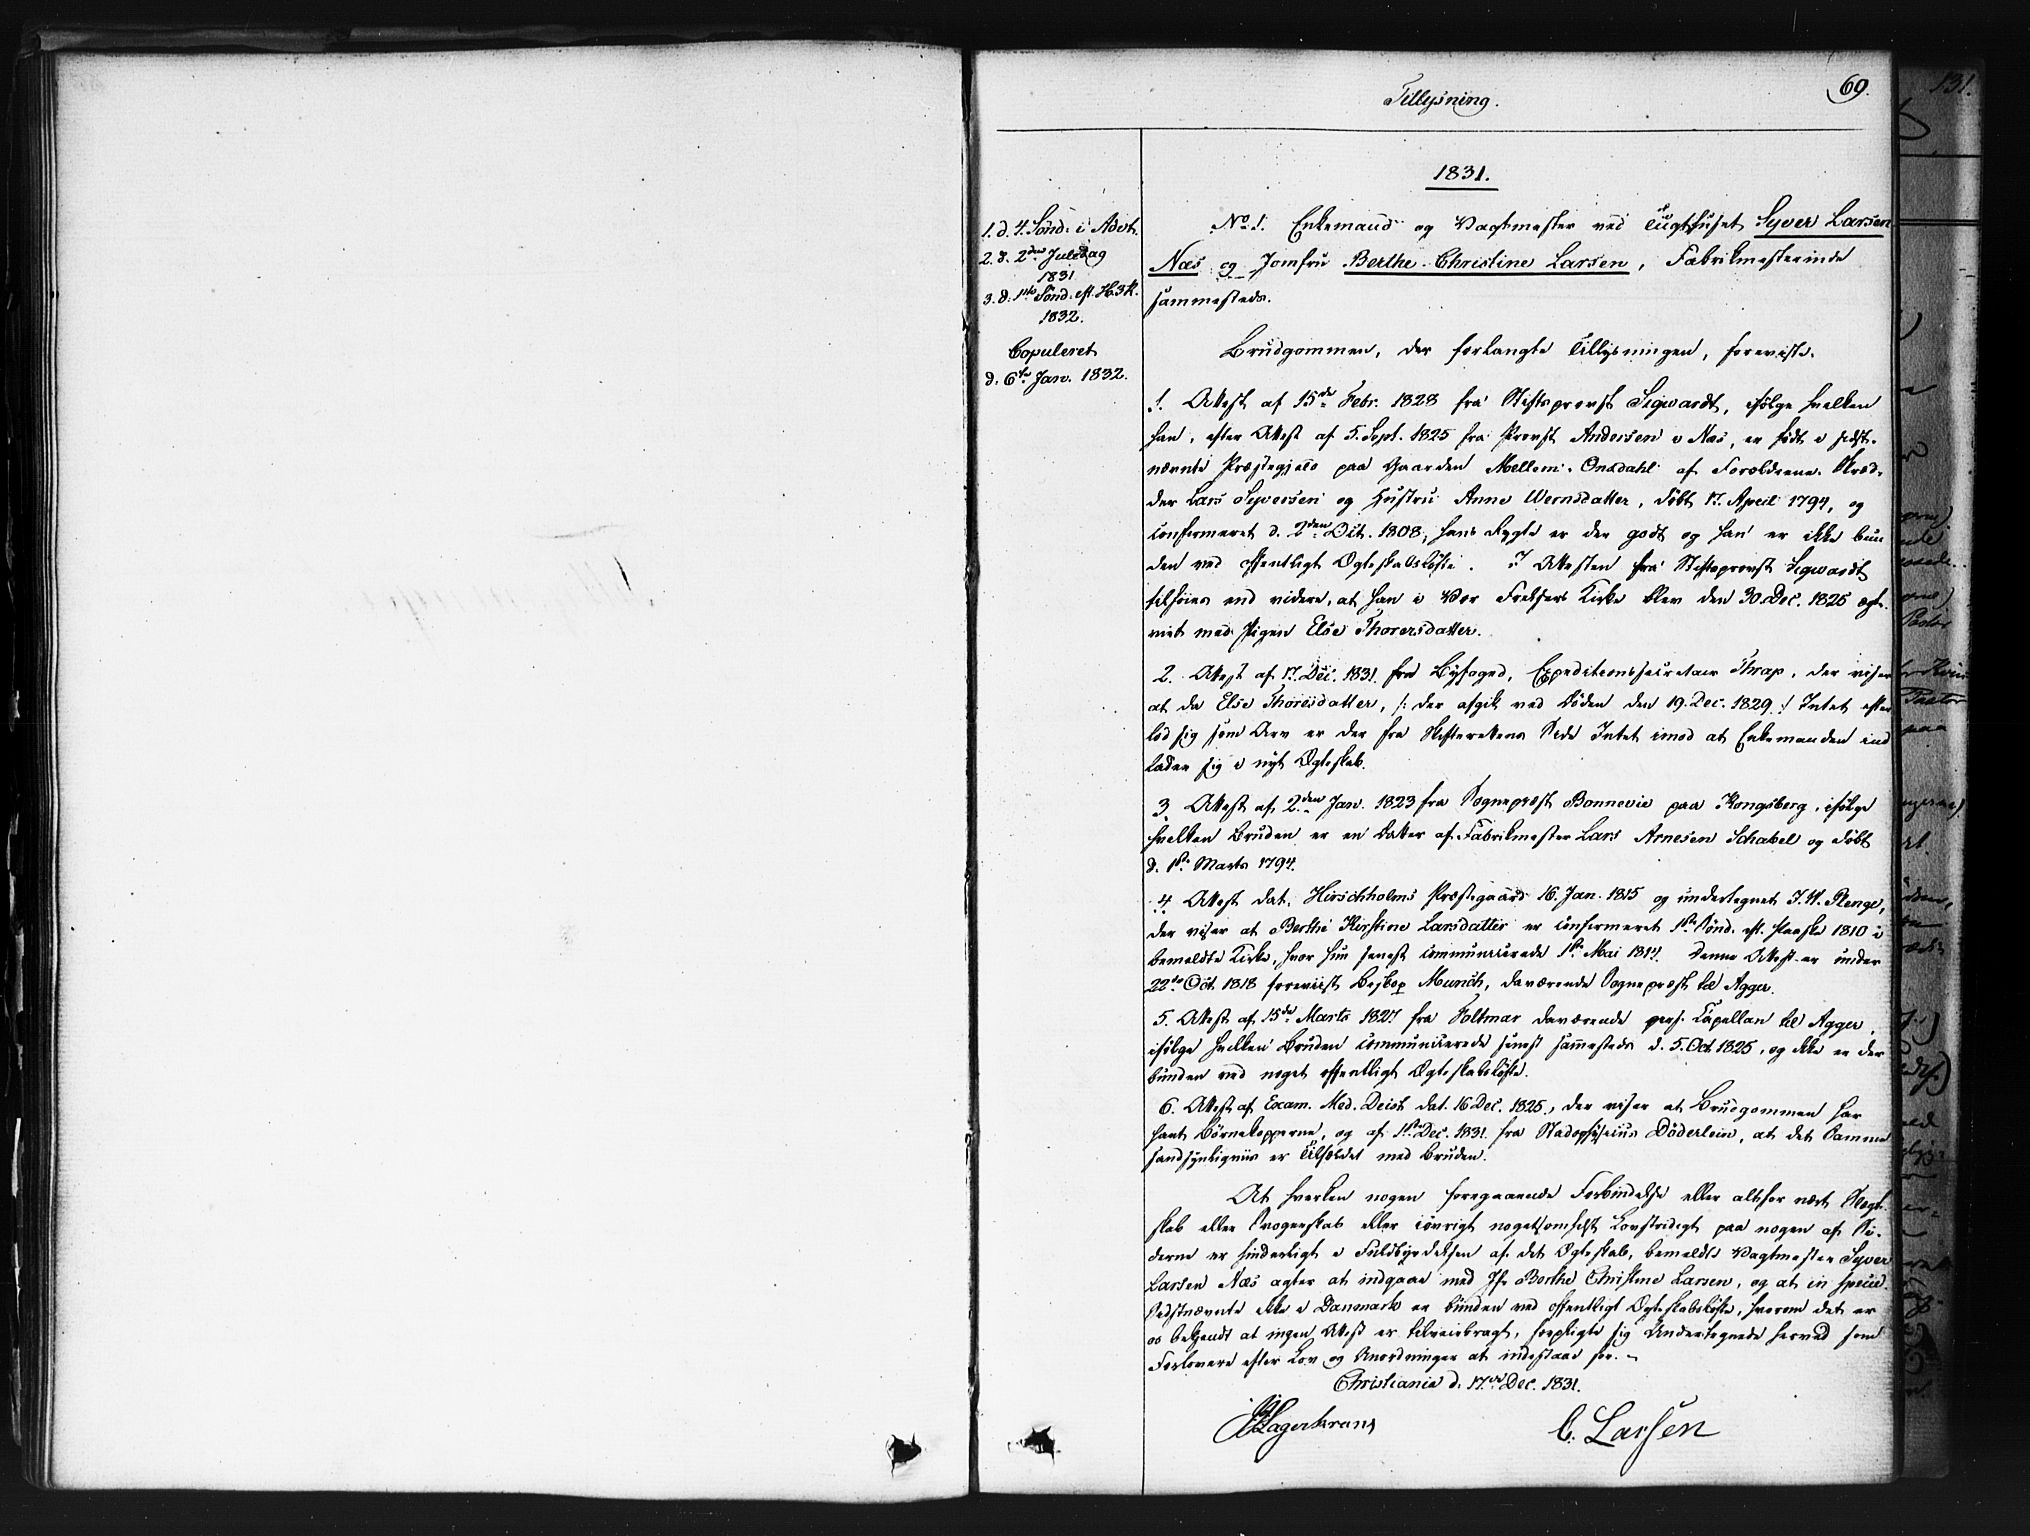 Tillysning.
69.
131.
1831.
1. d. 4. Sönd: i Advt.
2. d. 2den Juledag
1831
3. d. 1ste Sönd. eft. H.3K.
1832.
Copuleret
d. 6te Jan. 1832.
No 1. Enkemand og Vagtmester ved Tugthuset Syver Larsen
Næs og Jomfru Berthe Christine Larsen, Fabrikmesterinde
sammesteds.
Brudgommen, der forlangte Tillysningen, foreviste.
1. Attest af 15de Febr. 1828 fra Stiftsprovst Sigwardt, ifölge hvilken
han, efter Attest af 5. Sept. 1825 fra Provst Andersen i Næs, er födt i sidst-
nævnte Præstegjeld paa Gaarden Mellem-Onsdahl af Forældrene Skræd-
der Lars Syversen og Hustru Anne Wernsdatter, döbt 17. April 1794, og
confirmeret d. 2den Oct. 1808, hans Rygte er der godt og han er ikke bun
den ved offentligt Ægteskabslöfte. I Attesten fra Stiftsprovst Sigwardt
tilföies end videre, at han i Vor Frelsers Kirke blev den 30. Dec. 1825 ægte-
viet med Pigen Else Thoresdatter.
2. Attest af 17. Dec. 1831 fra Byfoged, Expeditionssecretair Thrap, der viser
at da Else Thoresdatter, /: der afgik ved Döden den 19. Dec. 1829 :/ Intet efter
lod sig som Arv er der fra Skifterettens Side Intet imod at Enkemanden ind
lader sig i nyt Ægteskab.
3. Attest af 2den Jan. 1823 fra Sognepræst Bonnevie paa Kongsberg, ifölge
hvilken Bruden er en Datter af Fabrikmester Lars Arnesen Schabel og döbt
d. 1ste Marts 1794.
4. Attest dat. Hirschholms Præstegaard 16. Jan. 1815 og undertegnet J. H. Plenge,
der viser at Berthe Kirstine Larsdatter er confirmeret 1ste Sönd. eft. Paaske 1810 i
bemeldte Kirke, hvor hun senest communicerede 1ste Mai 1814. Denne Attest er under
22de Oct. 1818 foreviist Biskop Munch, daværende Sognepræst til Agger.
5. Attest af 15de Marts 1827 fra Foltmar daværende pers. Capellan til Agger,
ifölge hvilken Bruden communicerede senest sammesteds d. 5. Oct 1825, og ikke er der
bunden ved noget offentligt Ægteskabslöfte.
6. Attest af Exam. Med. Deich dat. 16 Dec. 1825, der viser at Brudgommen har
havt Börnekopperne, og af 1ste Dec. 1831 fra Stadsphysicus Döderlein, at det Samme
sandsynligviis er Tilfældet med Bruden.
At hverken nogen foregaaende Forbindelse eller altfor nært Slægt-
skab eller Svogerskab eller iövrigt nogetsomhelst Lovstridigt paa nogen af Si-
derne er hinderligt i Fuldbyrdelsen af det Ægteskab, bemeldte Vagtmester Syver
Larsen Næs agter at indgaae med Jfr Berthe Christine Larsen, og at in specie
Sidstnævnte ikke i Danmark er bunden ved offentligt Ægteskabslöfte, hvorom det er
os bekjendt at ingen Attest er tilveiebragt, forpligte sig Undertegnede herved som
Forlovere efter Lov og Anordninger at indestaae for.
Christiania d. 17de Dec. 1831.
Lagerkrans
C. Larsen